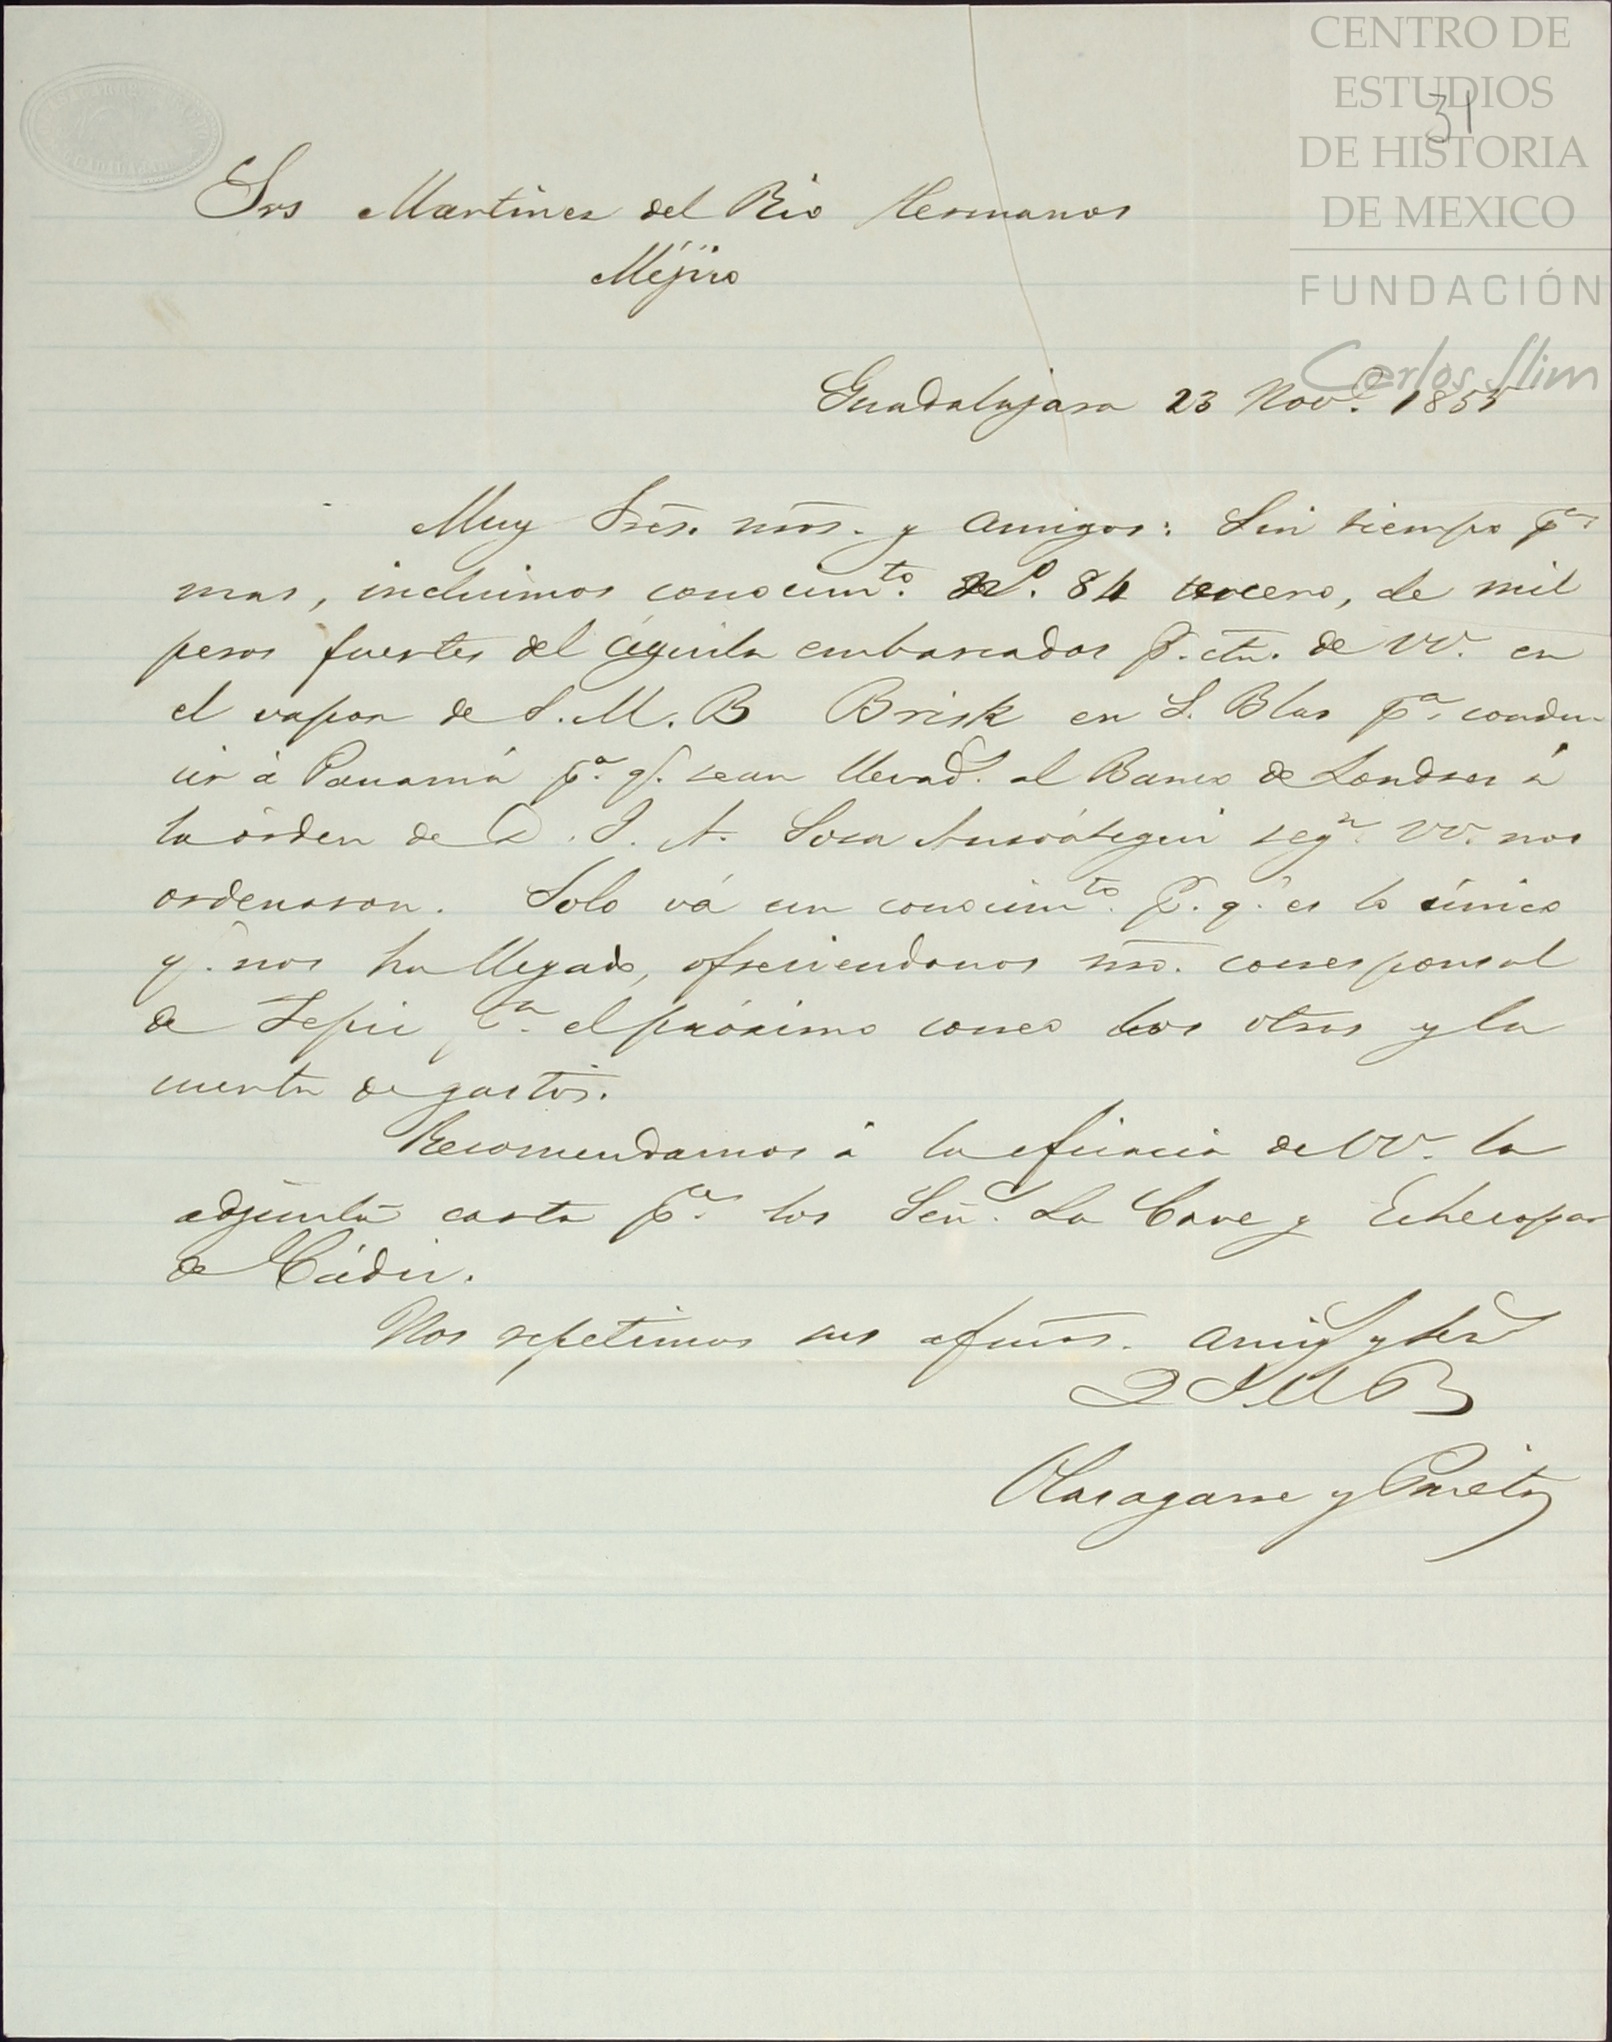 CENTRO DE
ESTUDIOS
DE HISTORIA
DE MEXICO
FUNDACIÓN
Carlos Slim
31
Srs Martinez del Rio Hermanos
Méjico
Guadalajara 23 Nov.e 1855
Muy Srēs. nrōs. y amigos: Sin tiempo pa.
mas, incluimos conocimto. No. 84 tercero, de mil
pesos fuertes del águila embarcados p. cta. de VV. en
el vapor de S. M. B Brisk en S. Blas pa. condu-
cir á Panamá pa. q. sean llevads. al Banco de Londres á
la órden de D. J. A. Sosa Ansoátegui segn. VV. nos
ordenaron. Solo vá un conocimto. p. q. es lo único
q. nos ha llegado, ofreciendonos nrō. corresponsal
de Tepic pa. el próximo correo los otros y la
cuenta de gastos.
Recomendamos á la eficacia de VV. la
adjunta carta pa. los Señs. La Cave y Echecopar
de Cádiz.
Nos repetimos sus afmōs. amigs y ser
Q S M B
Olasagarre y Prieto